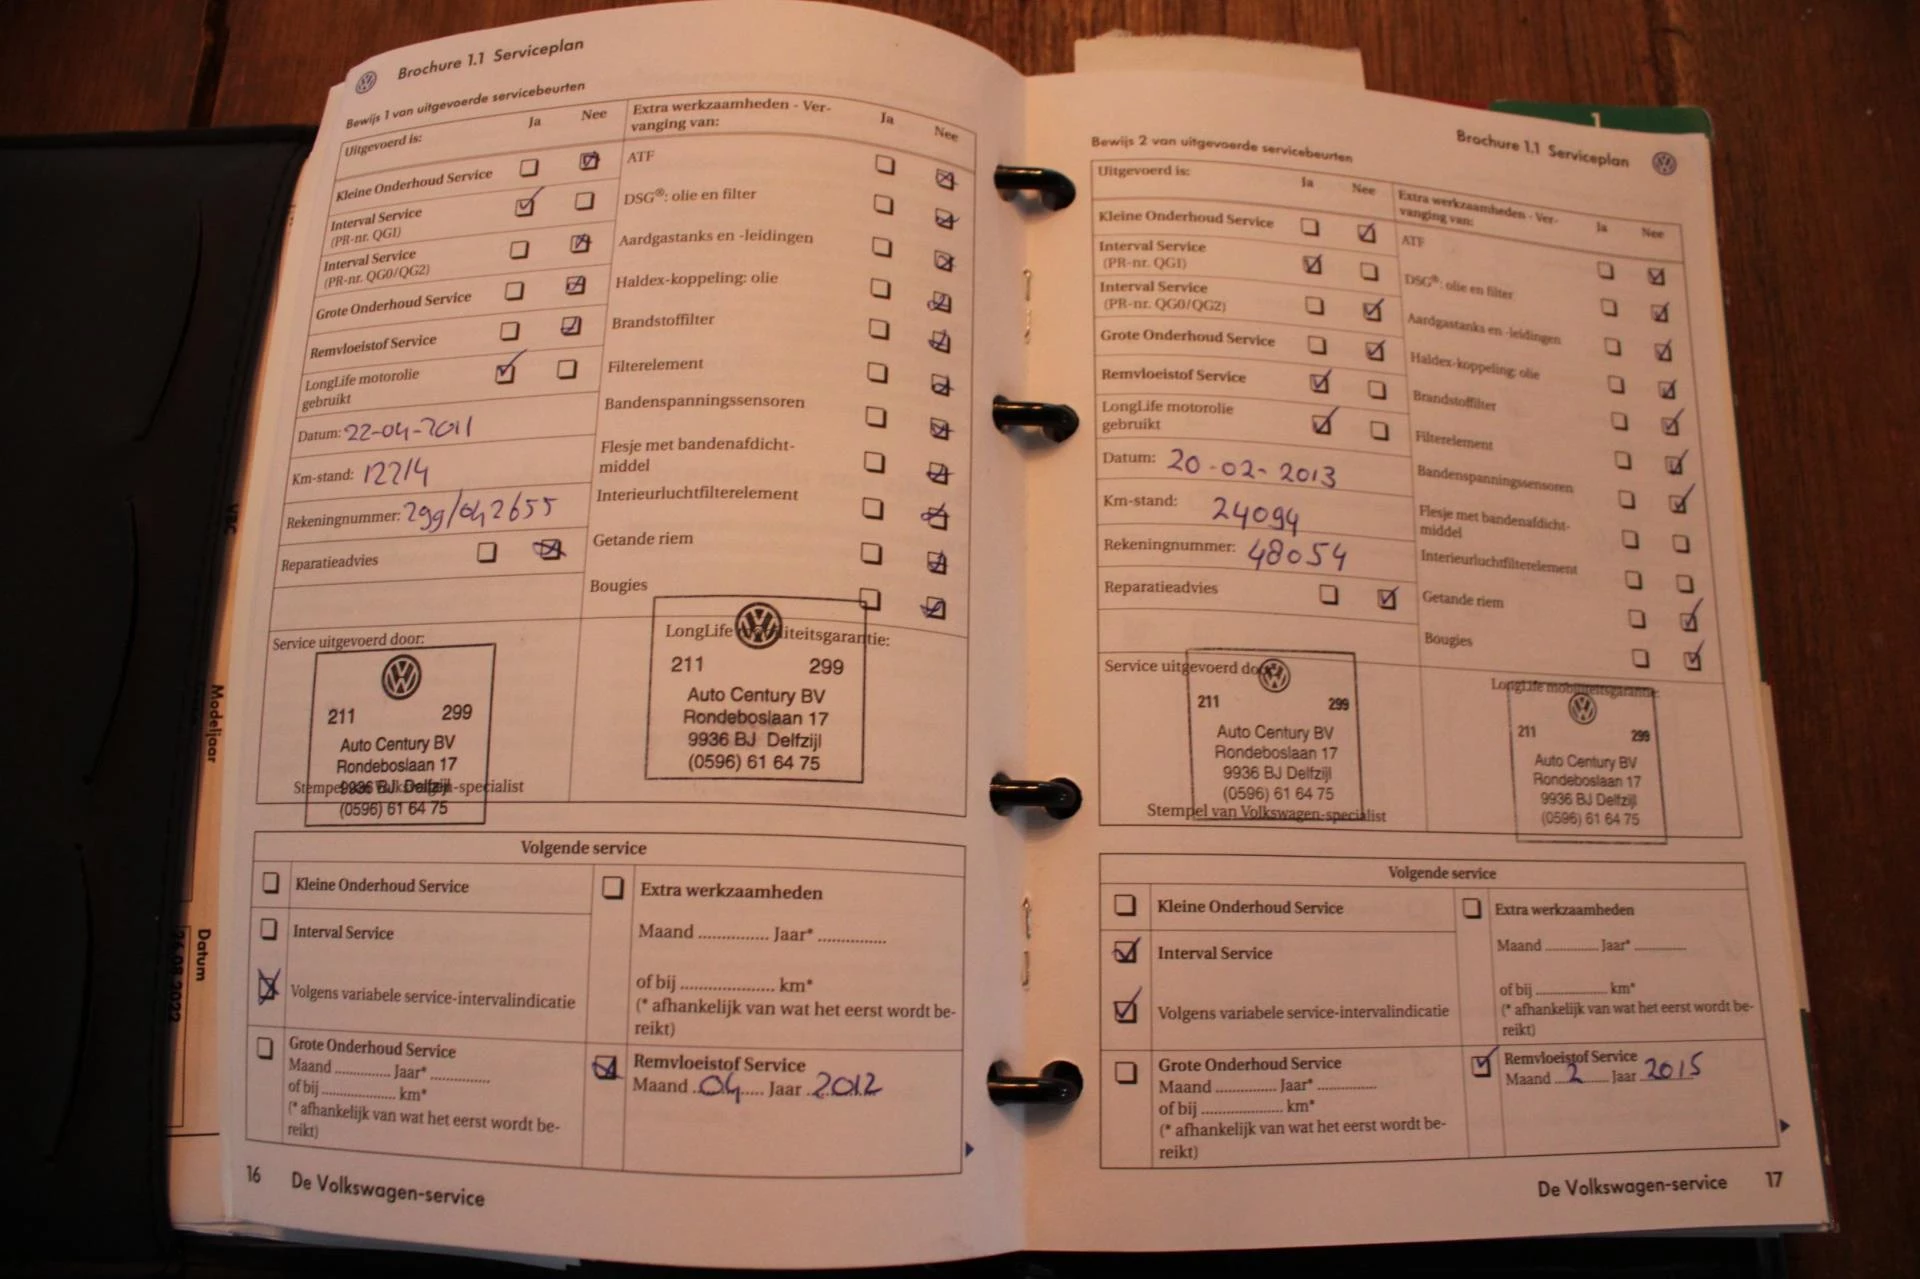 Brochure 1.1 Serviceplan
Bewijs 1 van uitgevoerde servicebeurten
Uitgevoerd is: Ja Nee
Kleine Onderhoud Service
Interval Service
(PR-nr. QG1)
Interval Service
(PR-nr. QG0/QG2)
Grote Onderhoud Service
Remvloeistof Service
LongLife motorolie
gebruikt
Datum: 22-04-2011
Km-stand: 12214
Rekeningnummer: 299/042655
Reparatieadvies
Extra werkzaamheden - Ver-
vanging van: Ja Nee
ATF
DSG®: olie en filter
Aardgastanks en -leidingen
Haldex-koppeling: olie
Brandstoffilter
Filterelement
Bandenspanningssensoren
Flesje met bandenafdicht-
middel
Interieurluchtfilterelement
Getande riem
Bougies
Service uitgevoerd door:
211 299
Auto Century BV
Rondeboslaan 17
9936 BJ Delfzijl
(0596) 61 64 75
Stempel van Volkswagen-specialist
LongLife mobiliteitsgarantie:
211 299
Auto Century BV
Rondeboslaan 17
9936 BJ Delfzijl
(0596) 61 64 75
Volgende service
Kleine Onderhoud Service
Interval Service
Volgens variabele service-intervalindicatie
Grote Onderhoud Service
Maand .............. Jaar* ..............
of bij .................... km*
(* afhankelijk van wat het eerst wordt be-
reikt)
Extra werkzaamheden
Maand .............. Jaar* ..............
of bij .................... km*
(* afhankelijk van wat het eerst wordt be-
reikt)
Remvloeistof Service
Maand 04 Jaar 2012
16 De Volkswagen-service
Brochure 1.1 Serviceplan
Bewijs 2 van uitgevoerde servicebeurten
Uitgevoerd is: Ja Nee
Kleine Onderhoud Service
Interval Service
(PR-nr. QG1)
Interval Service
(PR-nr. QG0/QG2)
Grote Onderhoud Service
Remvloeistof Service
LongLife motorolie
gebruikt
Datum: 20-02-2013
Km-stand: 24094
Rekeningnummer: 48054
Reparatieadvies
Extra werkzaamheden - Ver-
vanging van: Ja Nee
ATF
DSG®: olie en filter
Aardgastanks en -leidingen
Haldex-koppeling: olie
Brandstoffilter
Filterelement
Bandenspanningssensoren
Flesje met bandenafdicht-
middel
Interieurluchtfilterelement
Getande riem
Bougies
Service uitgevoerd door:
211 299
Auto Century BV
Rondeboslaan 17
9936 BJ Delfzijl
(0596) 61 64 75
Stempel van Volkswagen-specialist
LongLife mobiliteitsgarantie:
211 299
Auto Century BV
Rondeboslaan 17
9936 BJ Delfzijl
(0596) 61 64 75
Volgende service
Kleine Onderhoud Service
Interval Service
Volgens variabele service-intervalindicatie
Grote Onderhoud Service
Maand .............. Jaar* ..............
of bij .................... km*
(* afhankelijk van wat het eerst wordt be-
reikt)
Extra werkzaamheden
Maand .............. Jaar* ..............
of bij .................... km*
(* afhankelijk van wat het eerst wordt be-
reikt)
Remvloeistof Service
Maand 2 Jaar 2015
De Volkswagen-service 17
Modeljaar
Datum
1